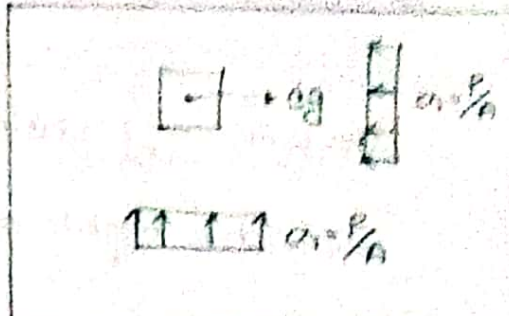 cg σ₁ = P/A
σ₁ = P/A